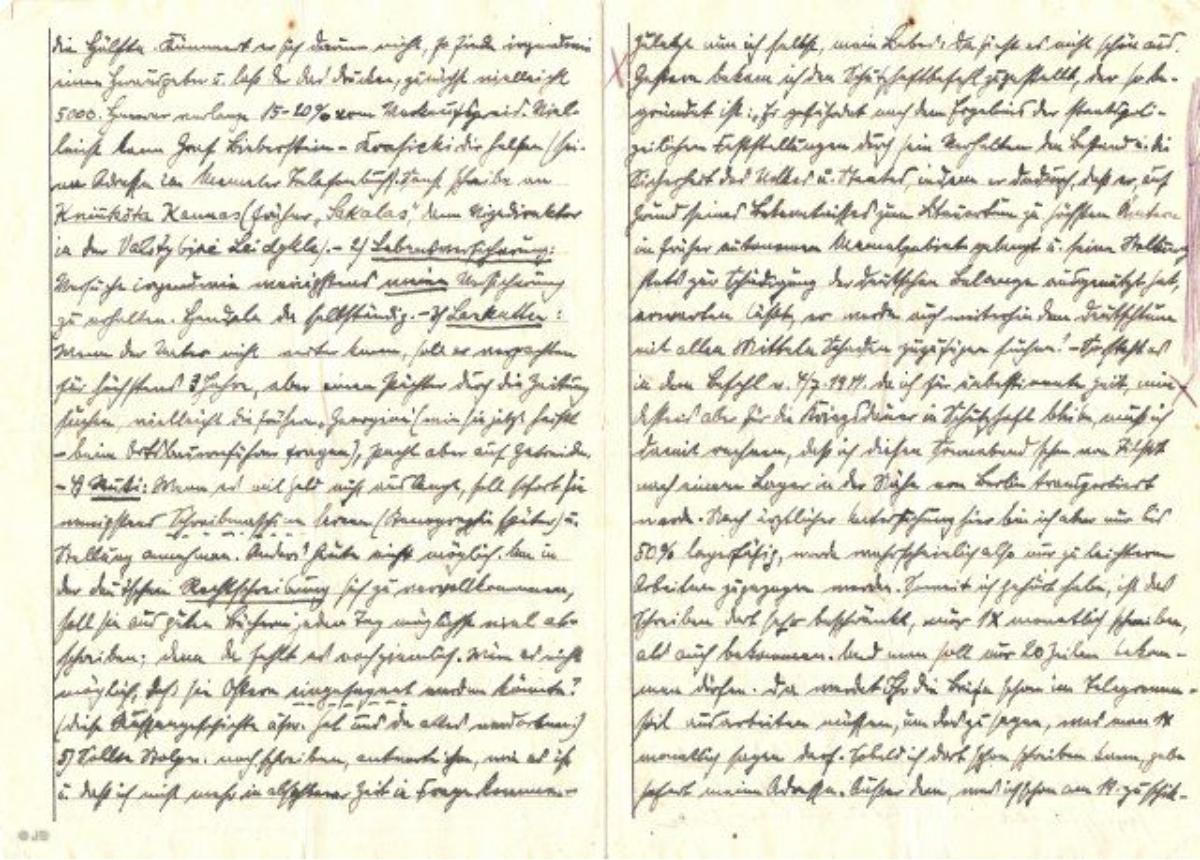 die Hälfte. Kümmert er sich darum nicht, so finde irgendwie
einen Herausgeber u. laß der das drucken, zunächst vielleicht
5000. Honorar verlange 15-20% vom Verkaufspreis. Viel-
leicht kann Graf Bieberstein-Krasicki dir helfen (sei-
ne Adresse im Memeler Telefonbuch. Sonst schreibe an
Knínkšta Kaunas (früher „Sakalas" dem Vizedirektor
in der Valstybinė Leidykla). - 2) Lebensversicherung:
Versuche irgendwie wenigstens meine Versicherung
zu erhalten. Handele da selbständig. - 3)
Wenn der Vater nicht weiter kann, soll er verpachten
für höchstens 3 Jahre, aber einen Pächter durch die Zeitung
suchen, vielleicht die frühere (wie sie jetzt heißt
- beim Ortsbauernführer fragen), Pacht aber auf Getreide.
- 4) Muti: Wenn es mit Geld nicht auslangt, soll sofort sie
wenigstens Schreibmaschine lernen (Stenographie später) u.
Stellung annehmen. Anders heute nicht möglich. Um in
der deutschen Rechtschreibung sich zu vervollkommnen,
soll sie aus guten Büchern jeden Tag möglichst viel ab-
schreiben; denn da fehlt es noch ziemlich. Wäre es nicht
möglich, daß sie Ostern eingesegnet werden könnte?
(diese usw. hat uns das alles verdorben!)
5) Sollte noch schreiben, antworte ihm, wie es ist
u. daß ich nicht mehr in absehbarer Zeit in Frage komme. -
Zuletzt nun ich selbst, mein Lieber: da sieht es nicht schön aus.
Gestern bekam ich den Schutzhaftbefehl zugestellt, der so be-
gründet ist: „Er gefährdet nach dem Ergebnis der staatspoli-
zeilichen Feststellungen durch sein Verhalten den Bestand u. die
Sicherheit des Volkes u. Staates, indem er dadurch, daß er, auf
Grund seines Bekenntnisses zum Litauertum zu höchsten Ämtern
im früher autonomen Memelgebiet gelangt u. seine Stellung
stets zur Schädigung der deutschen Belange ausgenützt hat,
erwarten läßt, er werde auch weiterhin dem Deutschtum
mit allen Mitteln Schaden zuzufügen suchen." - So steht es
in dem Befehl v. 4/7. 1941. Da ich für unbestimmte Zeit, min-
destens aber für die Kriegsdauer in Schutzhaft bleibe, muß ich
damit rechnen, daß ich diesen Sonnabend schon von Tilsit
nach einem Lager in der Nähe von Berlin transportiert
werde. Nach ärztlicher Untersuchung hier bin ich aber nur bis
50% lagerfähig, werde wahrscheinlich also nur zu leichteren
Arbeiten zugezogen werden. Soweit ich gehört habe, ist das
Schreiben dort sehr beschränkt, nur 1x monatlich schreiben,
als auch bekommen. Und man soll nur 20 Zeilen bekom-
men dürfen. Da werdet Ihr die Briefe schon im Telegramm-
stil ausarbeiten müssen, um das zu sagen, was man 1x
monatlich sagen darf. Sobald ich dort schon schreiben kann, gebe
sofort meine Adresse. Außer dem, was ich schon am 12. zu schik-